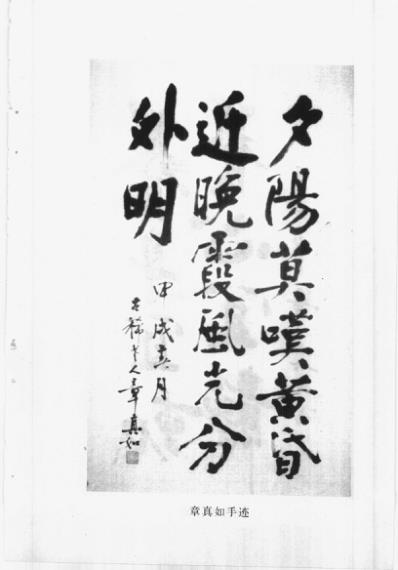 夕陽莫嘆黄昏
近晚霞風光分
外明
甲戌真月
古稀老人章真如
章真如手迹